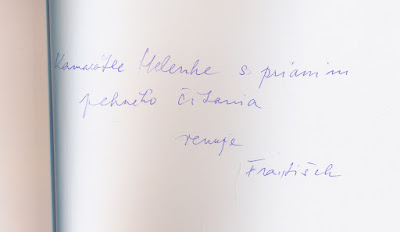 Kamarátke Melenke s prianim
pekného čítania
venuje
František